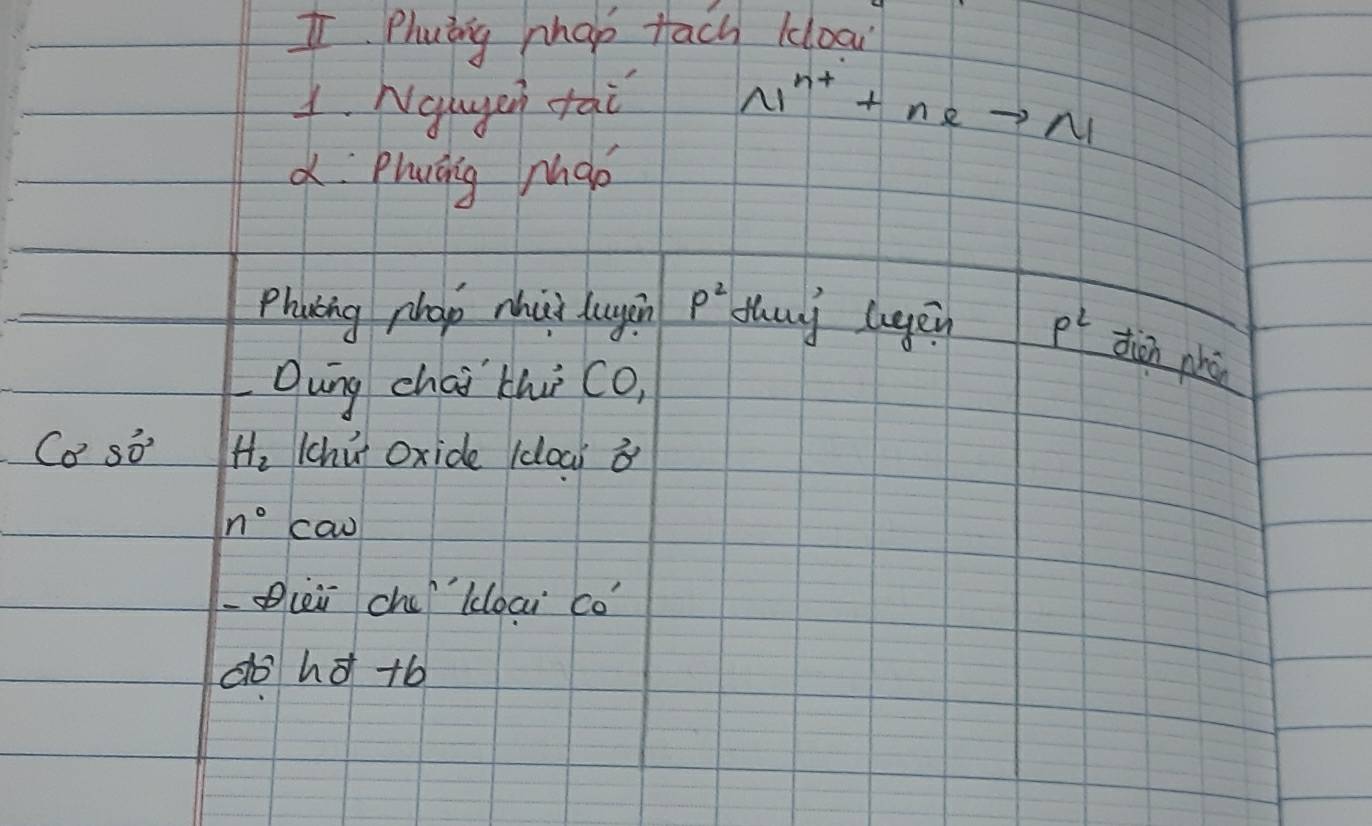 II. Phương pháp tách kloại
1. Nguyên tắc M^n+ + ne → M
2. Phương pháp
Phương pháp nhiệt luyện P² thuỷ luyện P² điện phân
- Dùng chất khử CO,
Cơ sở H₂ khử oxide kloại ở
n° cao
- Điều chế kloại có
độ hđ tb